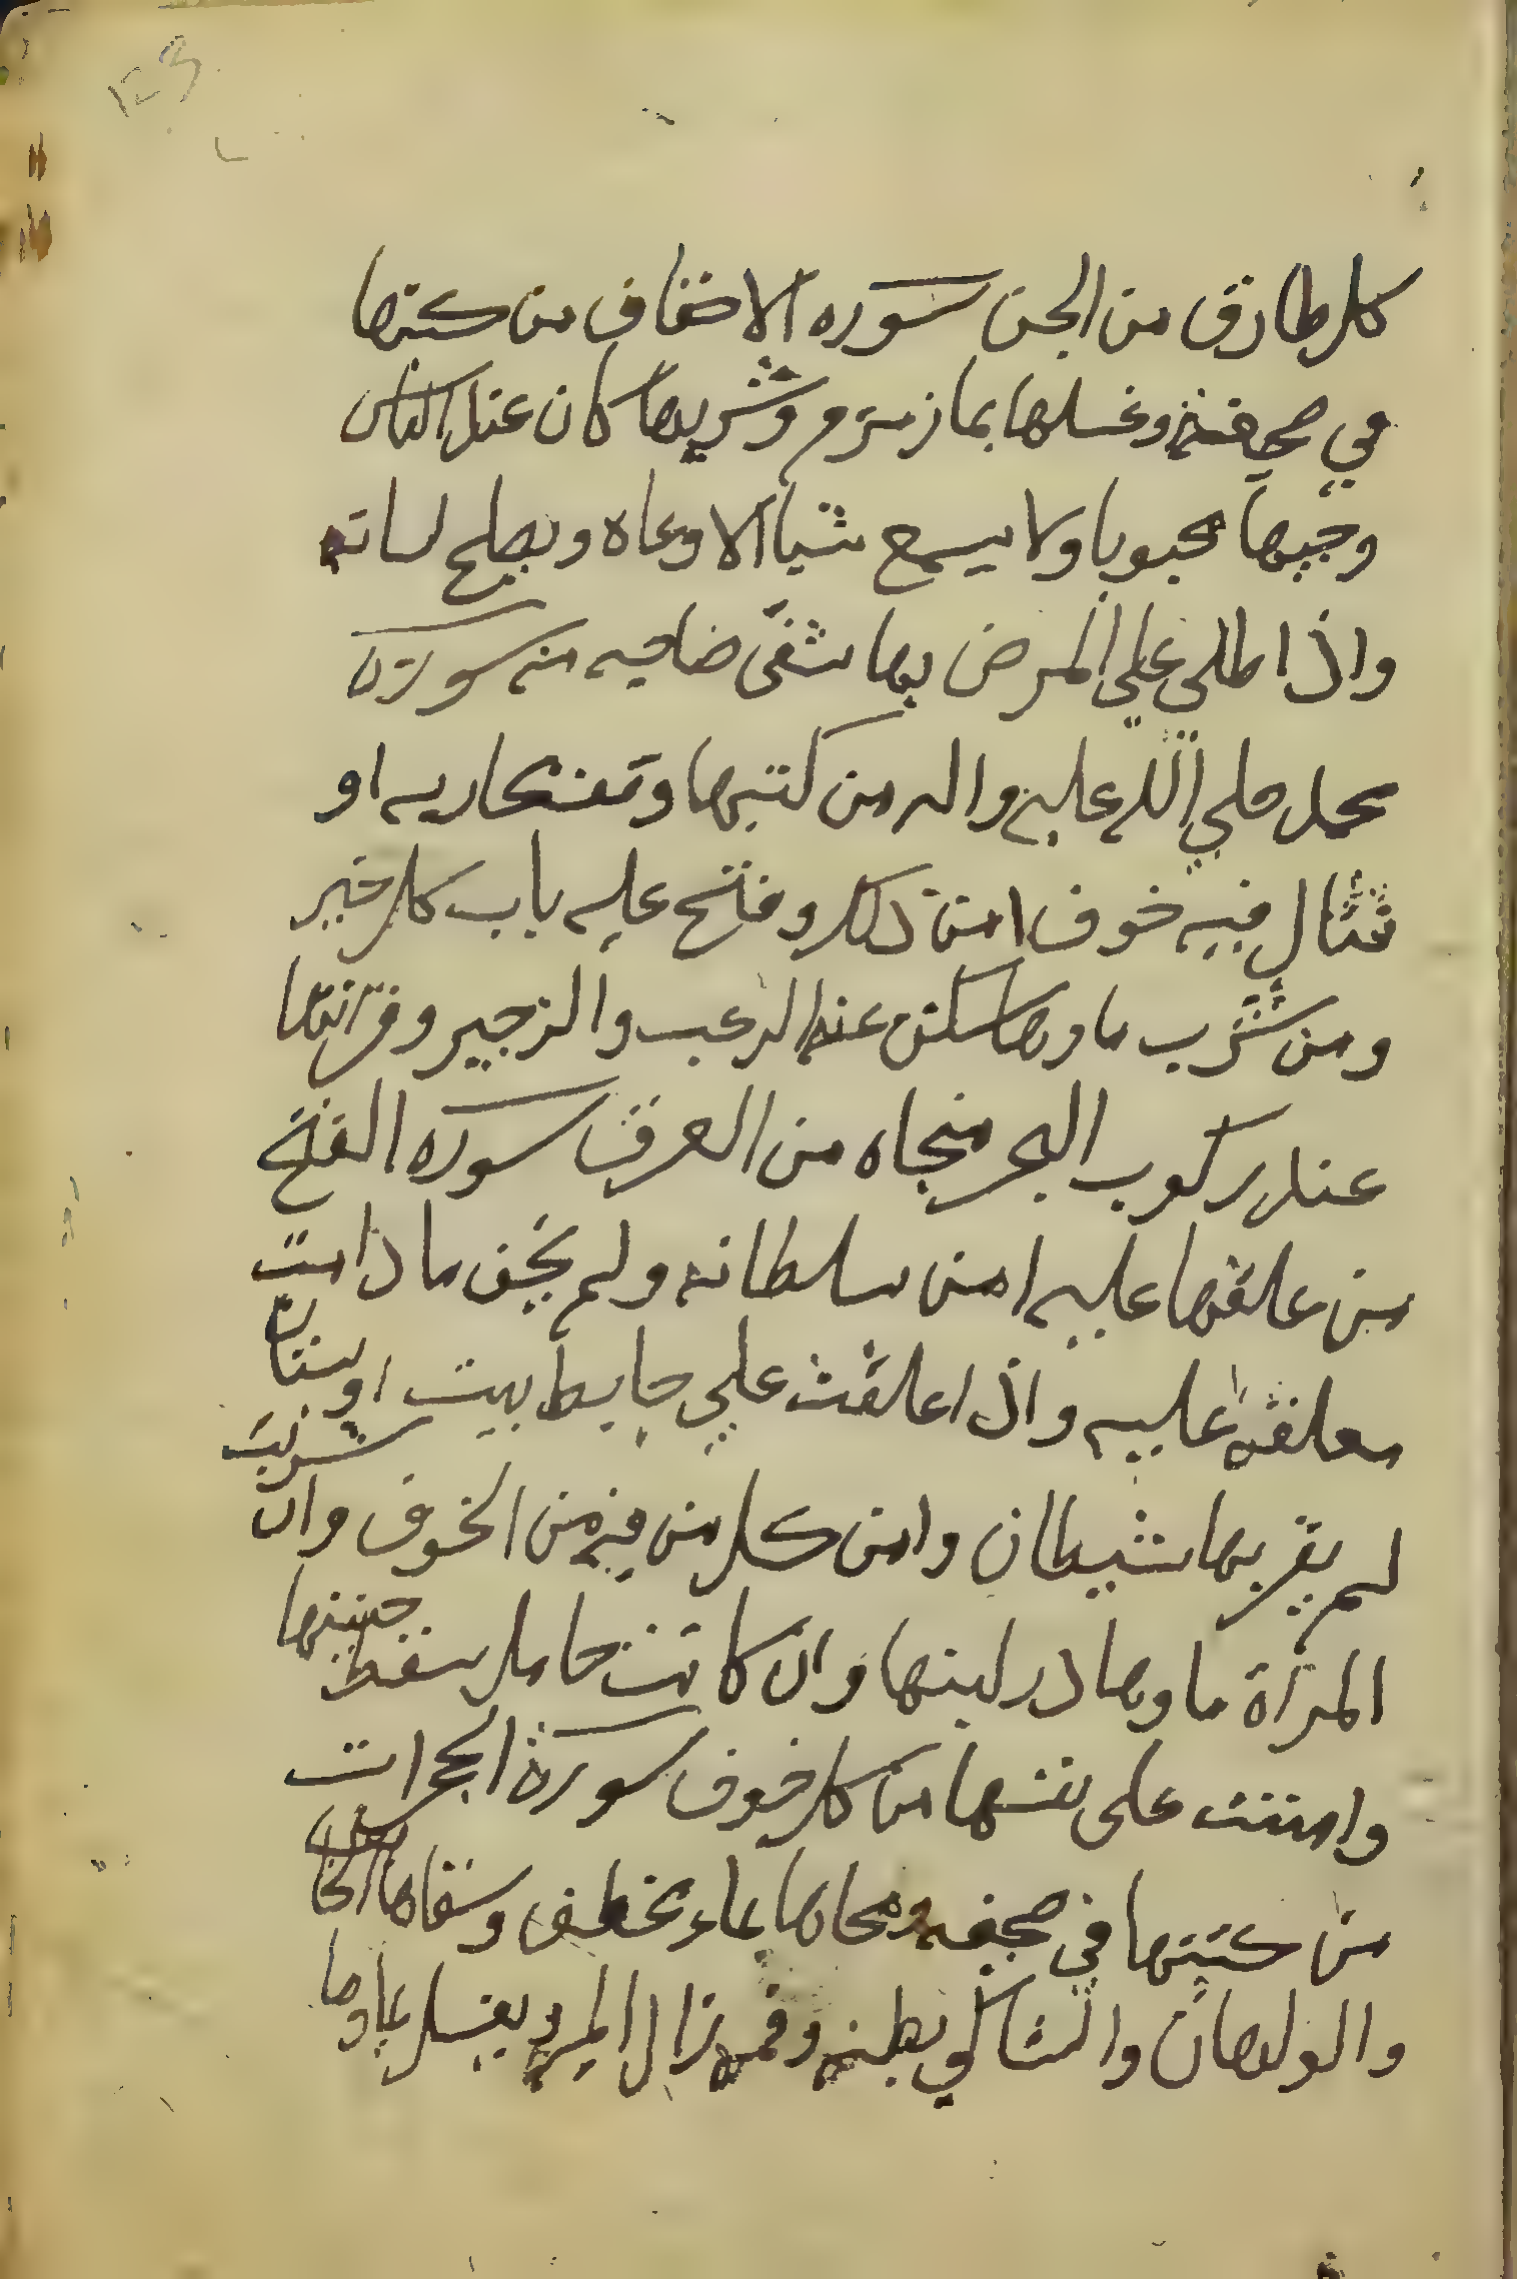 كل طارق من الجن سوره الاحقاف من كتبها
في صحيفة وغسلها بما زمزم وشربها كان عند الناس
وجيها محبوبا ولا يسمع شيا الا وعاه ويصلح لسانه
واذا طلي علي المرض بها شفى صاحبه منه سورة
محمد صلي الله عليه واله من كتبها وتعنكاربه او
قتال فيه خوف امن ذلك وفتح عليه باب كل خير
ومن شرب ماوها سكن عنه الرعب والزجير وقرائتها
عند ركوب البحر منجاه من الغرق سوره الفتح
من علقها عليه امن سلطانه ولم يخف ما دامت
معلقة عليه واذا علقت علي حايط بيت او بستان
لم يقربها شيطان وامن كل من فيه من الخوف وان شربت
المرأة ماوها در لبنها وان كانت حامل سقط جنينها
وامنت على نفسها من كل خوف سورة الحجرات
من كتبها في صحيفه ومحاها بماء وسقاها
والولهان والشاكي بطنه وفمه زال المرض بغسل بماوها